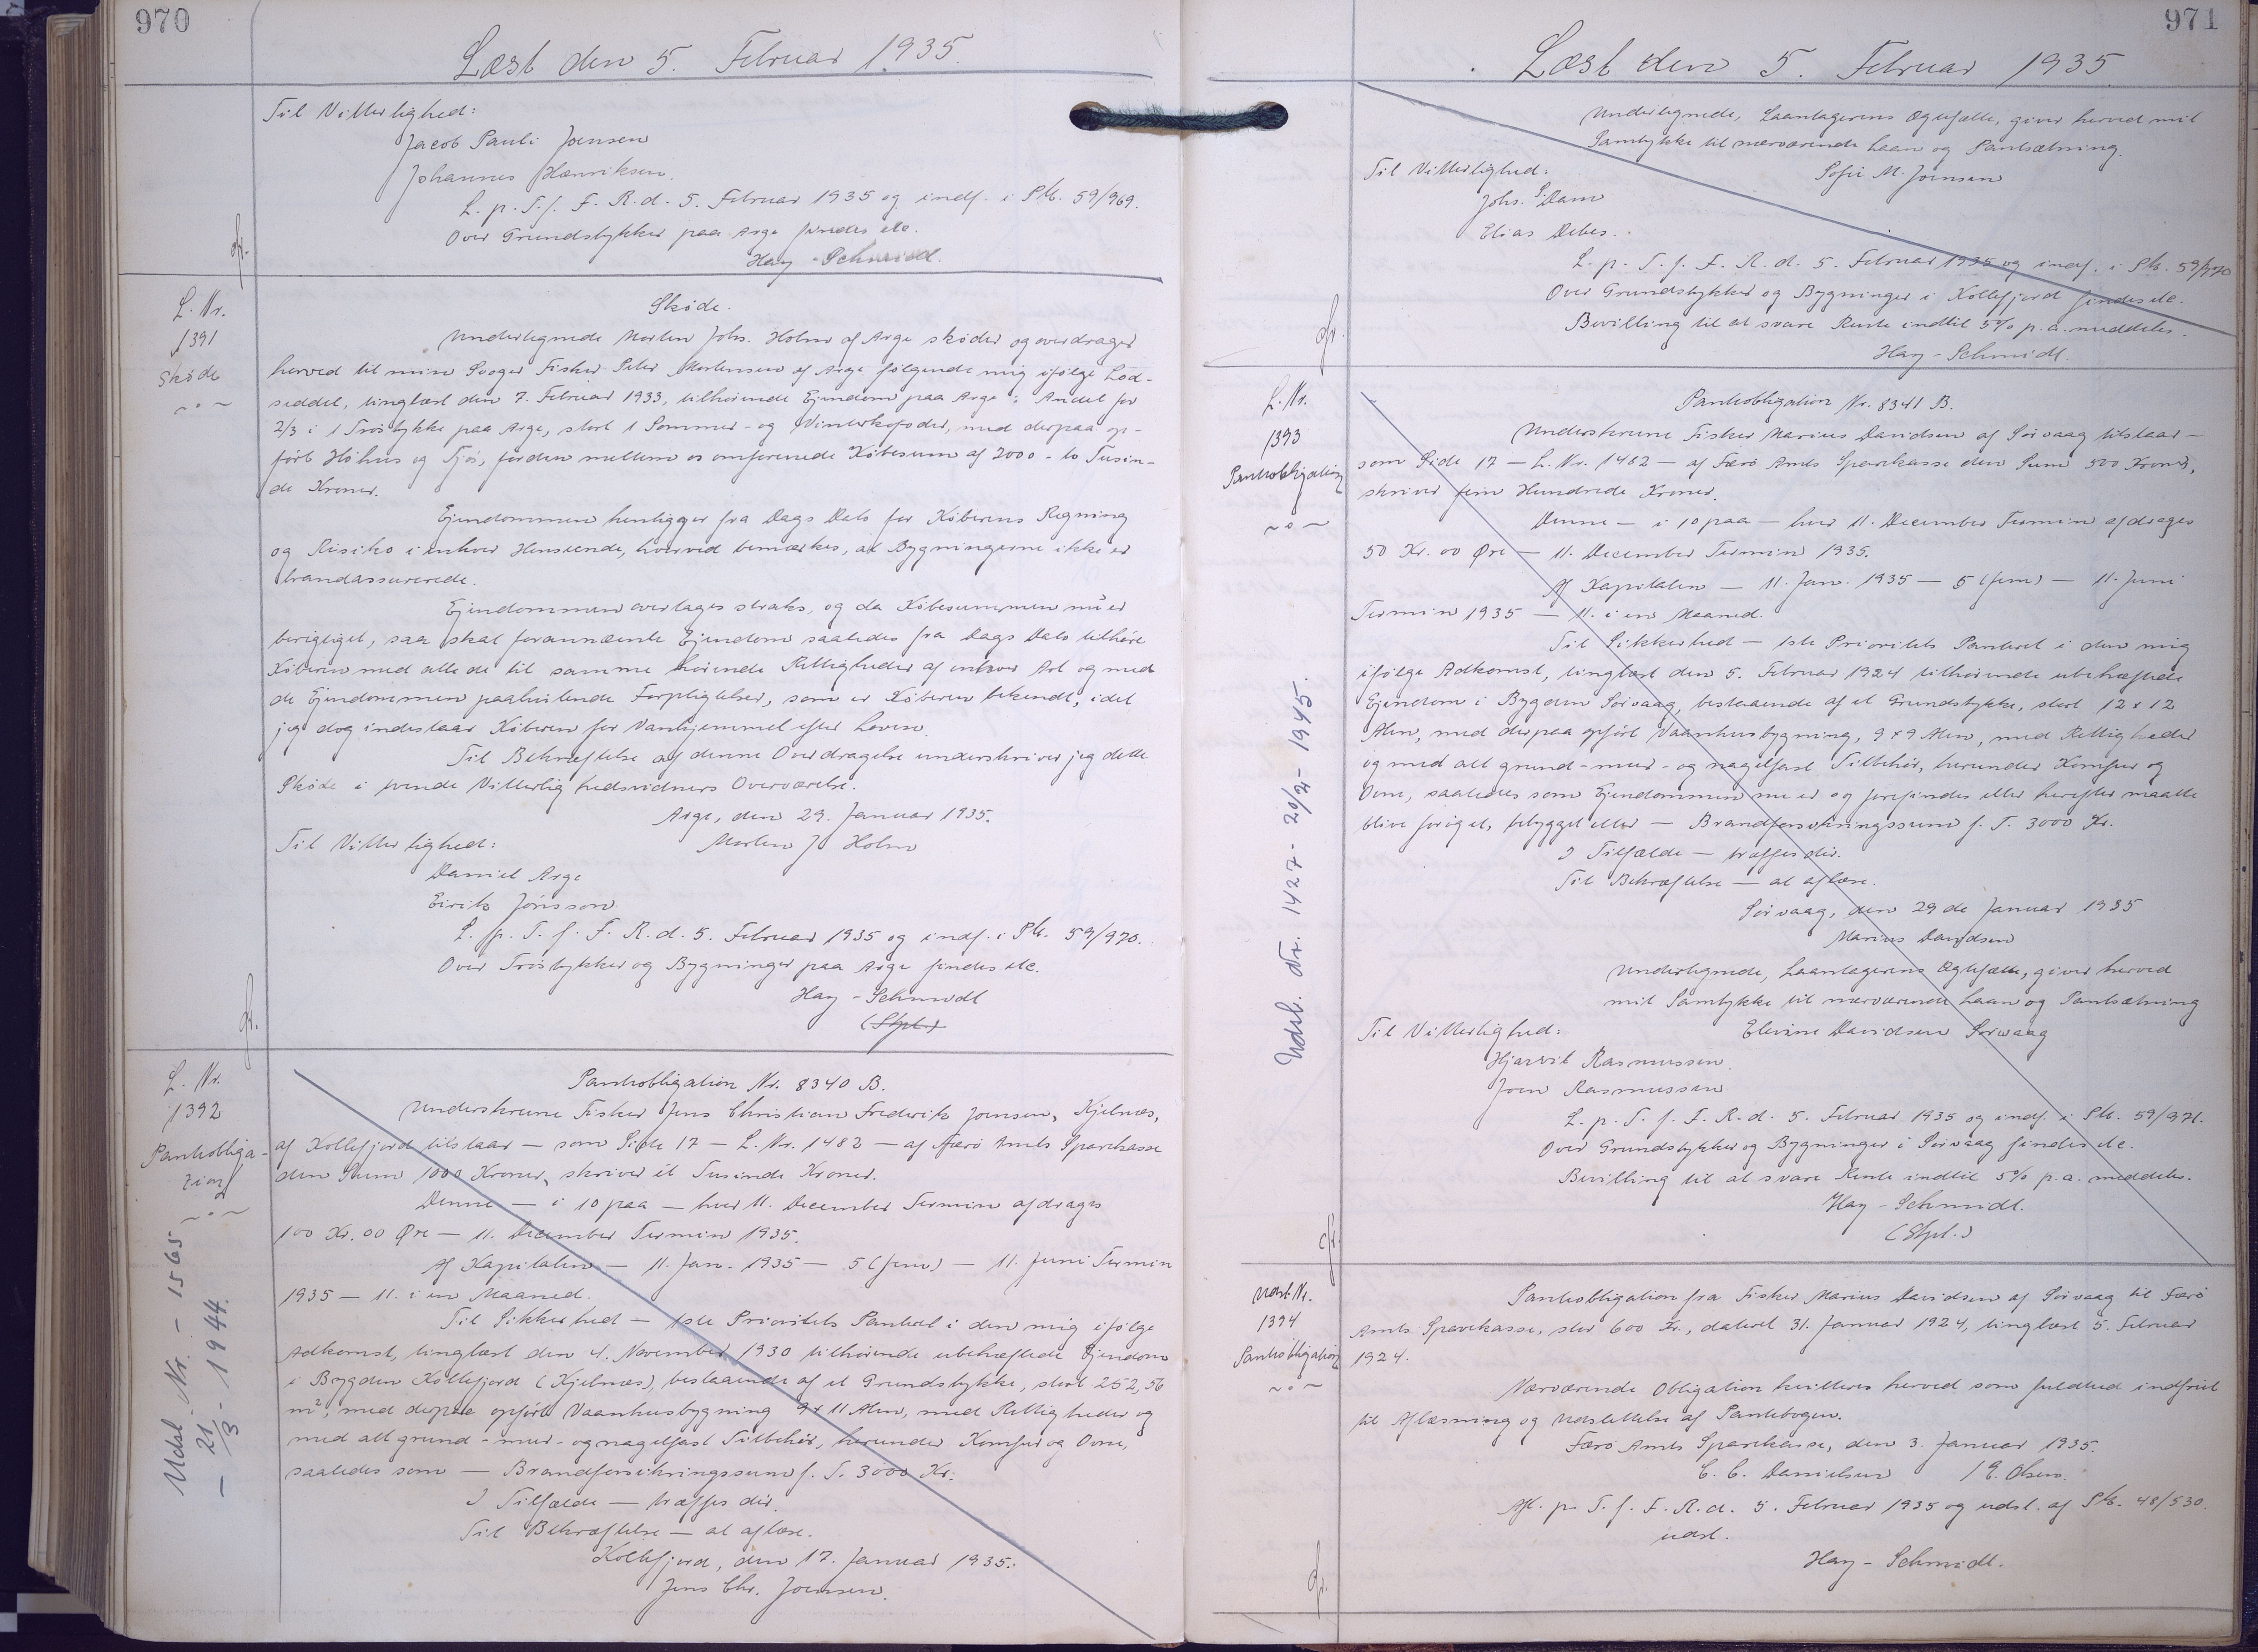 970
Læst den 5. Februar 1935.
Til Vitterlighed:
Jacob Pauli Joensen
Johannes Henriksen.
L. p. T. f. F. R. d. 5. Februar 1935 og indf. i Pb. 59/969.
Over Grundstykker paa Arge findes etc.
Hay-Schmidt.
cfr.
L. Nr.
1391
Skøde
~ o ~
Skøde.
Undertegnede Morten Johs. Holm af Arge skøder og overdrager
herved til min Svoger Fisker Peter Mortensen af Arge følgende mig ifølge Lod-
seddel, tinglæst den 7. Februar 1933, tilhørende Ejendom paa Arge: Andel for
2/3 i 1 Trøstykke paa Arge, stort 1 Sommer- og Vinterkofoder, med derpaa op-
ført Høhus og Fjós, for den mellem os omforenede Købesum af 2000 - to Tusin-
de Kroner.
Ejendommen henligger fra Dags Dato for Køberens Regning
og Risiko i enhver Henseende, hvorved bemærkes, at Bygningerne ikke er
brandassurerede.
Ejendommen overtages straks, og da Købesummen nu er
berigtiget, saa skal forannævnte Ejendom saaledes fra Dags Dato tilhøre
Køberen med alle de til samme hørende Rettigheder af enhver Art og med
de Ejendommen paahvilende Forpligtelser, som er Køberen bekendt, idet
jeg dog indestaar Køberen for Vanhjemmel efter Loven.
Til Bekræftelse af denne Overdragelse underskriver jeg dette
Skøde i tvende Vitterlighedsvidners Overværelse.
Arge, den 29. Januar 1935.
Til Vitterlighed: Morten J Holm
Daniel Arge
Eirik Jónsson
L. p. T. f. F. R. d. 5. Februar 1935 og indf. i Pb. 59/970.
Over Trøstykker og Bygninger paa Arge findes etc.
Hay-Schmidt
(Stpl.)
cfr.
L. Nr.
1392
Pantobliga-
tion
~ o ~
Udsl. Nr. - 1565
- 21/3 - 1944.
Pantobligation Nr. 8340 B.
Underskrevne Fisker Jens Christian Frederik Joensen, Kjelnæs,
af Kollefjord tilstaar — som Side 17 — L. Nr. 1482 — af Færø Amts Sparekasse
den Sum 1000 Kroner, skriver ét Tusinde Kroner.
Denne — i 10 paa — hver 11. December Termin afdrages
100 Kr. 00 Øre — 11. December Termin 1935.
Af Kapitalen — 11. Jan. 1935 — 5 (fem) — 11. Juni Termin
1935 — 11. i en Maaned.
Til Sikkerhed — 1ste Prioritets Panteret i den mig ifølge
Adkomst, tinglæst den 4. November 1930 tilhørende ubehæftede Ejendom
i Bygden Kollefjord (Kjelnæs), bestaaende af et Grundstykke, stort 252,56
m², med derpaa opført Vaanhusbygning 9 x 11 Alen, med Rettigheder og
med alt grund-mur- og nagelfast Tilbehør, herunder Komfur og Ovne,
saaledes som — Brandforsikringssum f. T. 3000 Kr.
I Tilfælde — træffes dér.
Til Bekræftelse — at aflæse.
Kollefjord, den 17. Januar 1935.
Jens Chr. Joensen.
971
Læst den 5. Februar 1935
Undertegnede, Laantagerens Ægtefælle, giver herved mit
Samtykke til nærværende Laan og Pantsætning.
Til Vitterlighed: Sofie M. Joensen
Johs. P. Dam
Elias Debes.
L. p. T. f. F. R. d. 5. Februar 1935 og indf. i Pb. 59/970
Over Grundstykker og Bygninger i Kollefjord findes etc.
Bevilling til at svare Rente indtil 5% p. a. meddeles.
Hay-Schmidt.
cfr.
L. Nr.
1393
Pantobligation
~ o ~
Udsl. Nr. 1427 - 20/2 - 1945.
Pantobligation Nr. 8341 B.
Underskrevne Fisker Marius Davidsen af Sørvaag tilstaar —
som Side 17 — L. Nr. 1482 — af Færø Amts Sparekasse den Sum 500 Kroner,
skriver fem Hundrede Kroner.
Denne — i 10 paa — hver 11. December Termin afdrages
50 Kr. 00 Øre — 11. December Termin 1935.
Af Kapitalen — 11. Jan. 1935 — 5 (fem) — 11. Juni
Termin 1935 — 11. i en Maaned.
Til Sikkerhed — 1ste Prioritets Panteret i den mig
ifølge Adkomst, tinglæst den 5. Februar 1924 tilhørende ubehæftede
Ejendom i Bygden Sørvaag, bestaaende af et Grundstykke, stort 12 x 12
Alen, med derpaa opført Vaanhusbygning, 9 x 9 Alen, med Rettigheder
og med alt grund-mur- og nagelfast Tilbehør, herunder Komfur og
Ovne, saaledes som Ejendommen nu er og forefindes eller herefter maatte
blive forøget, bebygget eller — Brandforsikringssum f. T. 3000 Kr.
I Tilfælde — træffes dér.
Til Bekræftelse — at aflæse.
Sørvaag, den 29 de Januar 1935
Marius Davidsen
Undertegnede, Laantagerens Ægtefælle, giver herved
mit Samtykke til nærværende Laan og Pantsætning
Til Vitterlighed: Elevine Davidsen Sørvaag
Hjarvil Rasmussen.
Joen Rasmussen
L. p. T. f. F. R. d. 5. Februar 1935 og indf. i Pb. 59/971.
Over Grundstykker og Bygninger i Sørvaag findes etc.
Bevilling til at svare Rente indtil 5% p. a. meddeles.
Hay-Schmidt.
(Stpl.)
cfr.
Udsl. Nr.
1394
Pantobligation
~ o ~
Pantobligation fra Fisker Marius Davidsen af Sørvaag til Færø
Amts Sparekasse, stor 600 Kr., dateret 31. Januar 1924, tinglæst 5. Februar
1924.
Nærværende Obligation kvitteres herved som fuldtud indfriet
til Aflæsning og Udslettelse af Pantebogen.
Færø Amts Sparekasse, den 3. Januar 1935.
C. C. Danielsen / E. Olsen.
Afl. p. T. f. F. R. d. 5. Februar 1935 og udsl. af Pb. 48/530.
udsl.
Hay-Schmidt.
cfr.